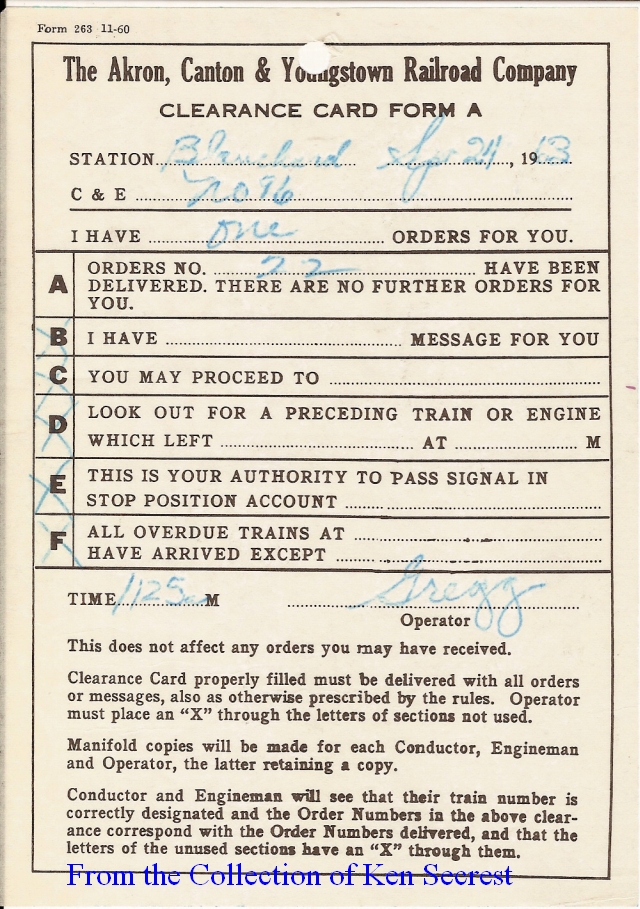 Form 263 11-60
The Akron, Canton & Youngstown Railroad Company
CLEARANCE CARD FORM A
STATION Blanchard 24, 1963
C & E No 96
I HAVE one ORDERS FOR YOU.
A ORDERS NO. 22 HAVE BEEN
DELIVERED. THERE ARE NO FURTHER ORDERS FOR
YOU.
B I HAVE MESSAGE FOR YOU
C YOU MAY PROCEED TO
D LOOK OUT FOR A PRECEDING TRAIN OR ENGINE
WHICH LEFT AT M
E THIS IS YOUR AUTHORITY TO PASS SIGNAL IN
STOP POSITION ACCOUNT
F ALL OVERDUE TRAINS AT
HAVE ARRIVED EXCEPT
TIME 1125 M Gregg
Operator
This does not affect any orders you may have received.
Clearance Card properly filled must be delivered with all orders
or messages, also as otherwise prescribed by the rules. Operator
must place an "X" through the letters of sections not used.
Manifold copies will be made for each Conductor, Engineman
and Operator, the latter retaining a copy.
Conductor and Engineman will see that their train number is
correctly designated and the Order Numbers in the above clear-
ance correspond with the Order Numbers delivered, and that the
letters of the unused sections have an "X" through them.
From the Collection of Ken Secrest